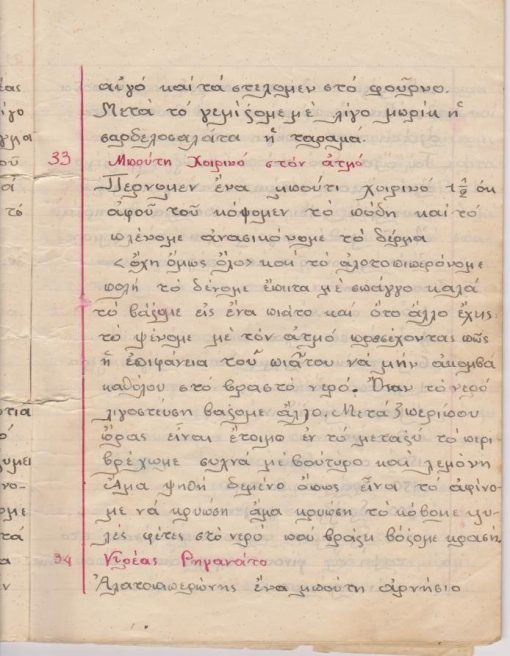 αὐγό καὶ τά στελομεν στό φοῦρνο.
Μετὰ τό γεμίζομε μὲ λίγο μωρίκ ἤ
σαρδελοσαλάτα ἤ ταραμά.
33 Μπούτη Χοιρινό στόν ἀτμό
Πέρνομεν ἕνα μπούτι χοιρινό 1 1/2 ὀκ
ἀφοῦ τοῦ κόψομεν τό πώδη καὶ τό
πλένομε ἀνασικόνομε τό δέρμα
<ὄχη ὅμως ὅλο> καὶ τό ἀλοτοπιπερόνομε
πολή τό δένομε ἔπιτα μέ σπάγγο καλά
τό βάζομε εἰς ἕνα πιάτο καί ὅτο ἄλλο ἔχης
τό ψένομε μέ τόν ἀτμό προσέχοντας πῶς
ἡ ἐπιφάνεια τοῦ πιᾶτου νά μήν ἀκομβά
καθόλου στό βραστό νερό. Ὅταν τό νερό
λιγοστεύση βάζομε ἄλλο. Μετά 3 περίπου
ὥρας εἶναι ἕτοιμο ἐν τό μεταξύ τό περι
βρέχωμε συχνά μέ βούτυρο καὶ λεμόνη
Ἅμα ψηθῆ δεμένο ὅπως εἶνα τό ἀφίνο-
με νά κρυώση ἅμα κρυώση τό κόβομε
λές φέτες στό νερο πού βράζει βάζομε κρασή.
34 Ντρέας Ρηγανάτο
Ἀλατοπιπερώνης ἕνα μπούτη ἀρνήσιο